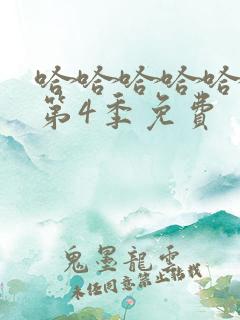 哈哈哈哈哈
第4季免费
鬼墨龍雲
未经同意禁止转载